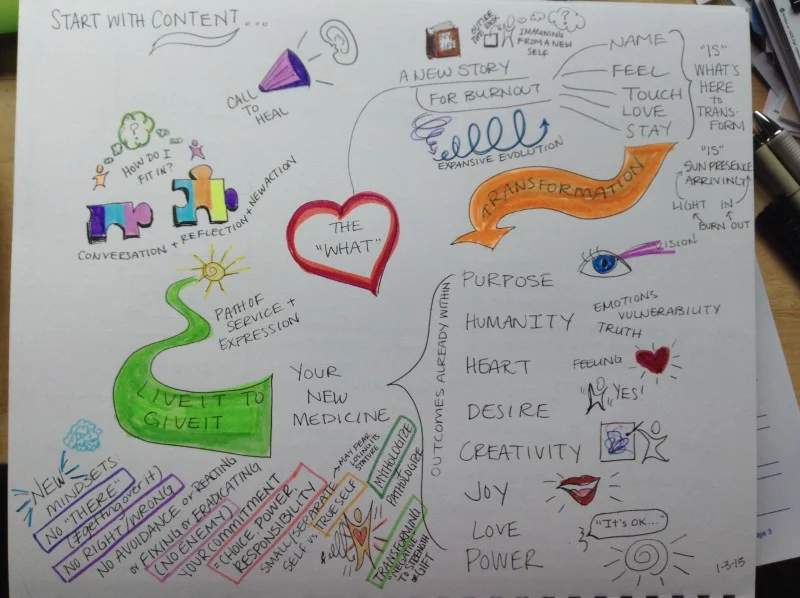 START WITH CONTENT...
CALL
TO
HEAL
OUTSIDE
THE BOX
IMAGINING
FROM A NEW
SELF
A NEW STORY
FOR BURNOUT
EXPANSIVE EVOLUTION
NAME
FEEL
TOUCH
LOVE
STAY
"IS"
WHAT'S
HERE
TO
TRANS-
FORM
"IS"
SUN PRESENCE
ARRIVING
LIGHT IN
BURN OUT
TRANSFORMATION
?
HOW DO I
FIT IN?
CONVERSATION + REFLECTION + NEW ACTION
THE
"WHAT"
PATH OF
SERVICE +
EXPRESSION
LIVE IT TO
GIVE IT
YOUR
NEW
MEDICINE
OUTCOMES ALREADY WITHIN
PURPOSE
VISION
HUMANITY
EMOTIONS
VULNERABILITY
TRUTH
HEART
FEELING
DESIRE
YES!
CREATIVITY
JOY
LOVE
"It's OK..."
POWER
NEW
MINDSETS:
NO "THERE"
(#gettingoverit)
NO RIGHT/WRONG
NO AVOIDANCE or REACTING
or FIXING or ERADICATING
(NO ENEMY)
YOUR COMMITMENT
= CHOICE, POWER,
RESPONSIBILITY
SMALL/SEPARATE
SELF vs TRUE SELF
MAY FEAR
LOSING ITS
STATURE
MYTHOLOGIZE
PATHOLOGIZE
TRANSFORMING
NEGATIVE
TO STRENGTH
or GIFT
1-3-15